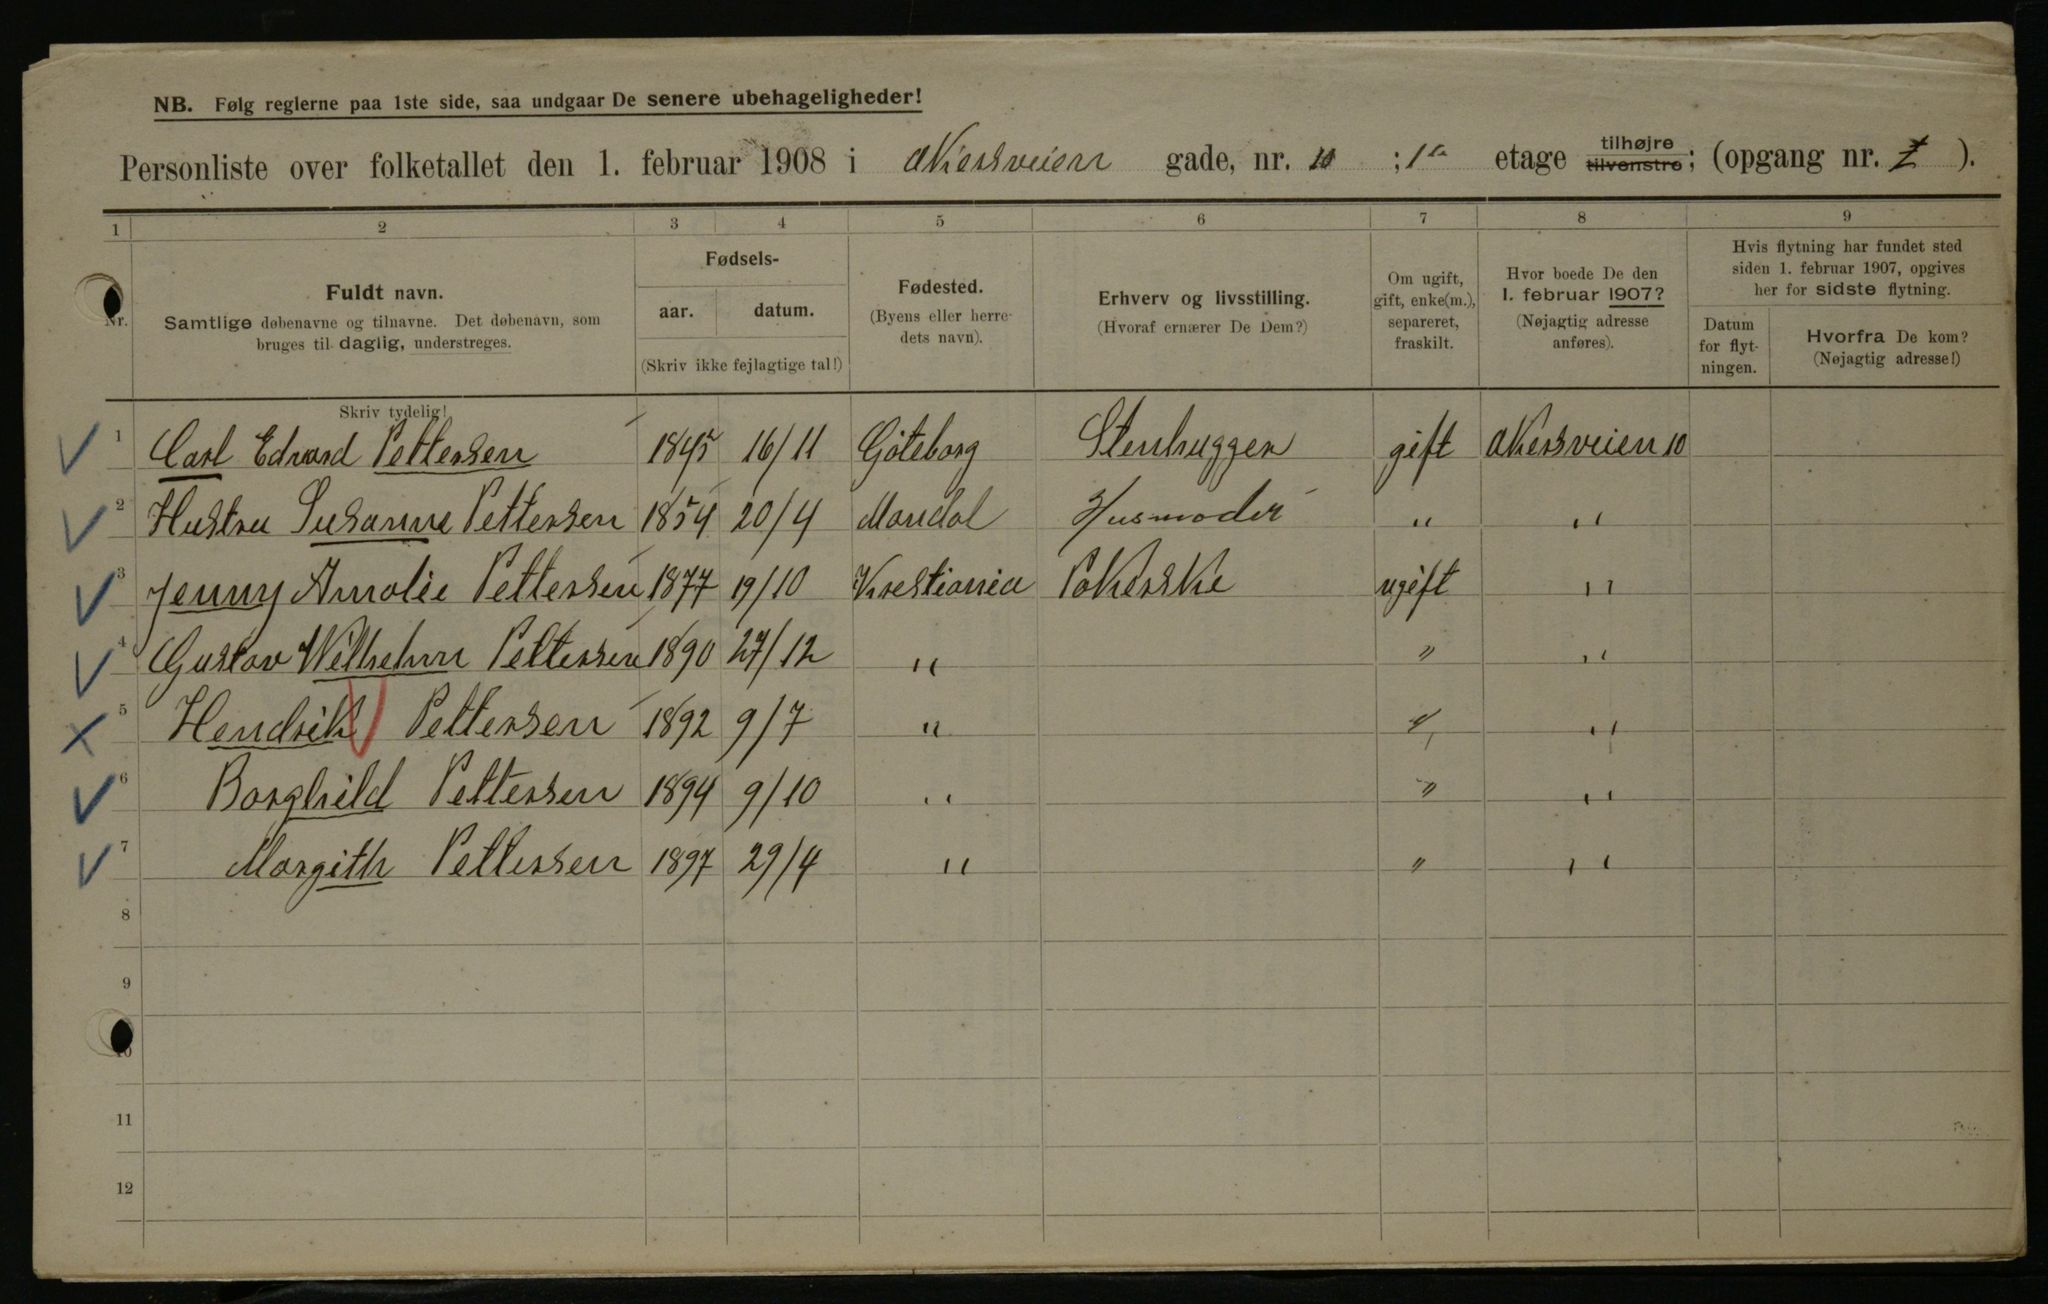 NB. Følg reglerne paa 1ste side, saa undgaar De senere ubehageligheder!
Personliste over folketallet den 1. februar 1908 i Akersveien gade, nr. 10 ; 1ste etage tilhøjre tilvenstre; (opgang nr. ).
1 2 3 4 5 6 7 8 9
Nr. Fuldt navn. Samtlige døbenavne og tilnavne. Det døbenavn, som bruges til daglig, understreges.
Fødsels- aar. datum. (Skriv ikke fejlagtige tal!)
Fødested. (Byens eller herredets navn).
Erhverv og livsstilling. (Hvoraf ernærer De Dem?)
Om ugift, gift, enke(m.), separeret, fraskilt.
Hvor boede De den 1. februar 1907? (Nøjagtig adresse anføres).
Hvis flytning har fundet sted siden 1. februar 1907, opgives her for sidste flytning.
Datum for flytningen. Hvorfra De kom? (Nøjagtig adresse!)
Skriv tydelig!
1 Carl Edvard Pettersen 1845 16/11 Göteborg Stenhugger gift Akersveien 10
2 Hustru Susanne Pettersen 1854 20/4 Mandal Husmoder " "
3 Jenny Amalie Pettersen 1877 19/10 Krestiania Påkerske ugift "
4 Gustav Wilhelm Pettersen 1890 27/12 " " "
5 Hendrik Pettersen 1892 9/7 " " "
6 Borghild Pettersen 1894 9/10 " " "
7 Margith Pettersen 1897 29/4 " " "
8
9
10
11
12